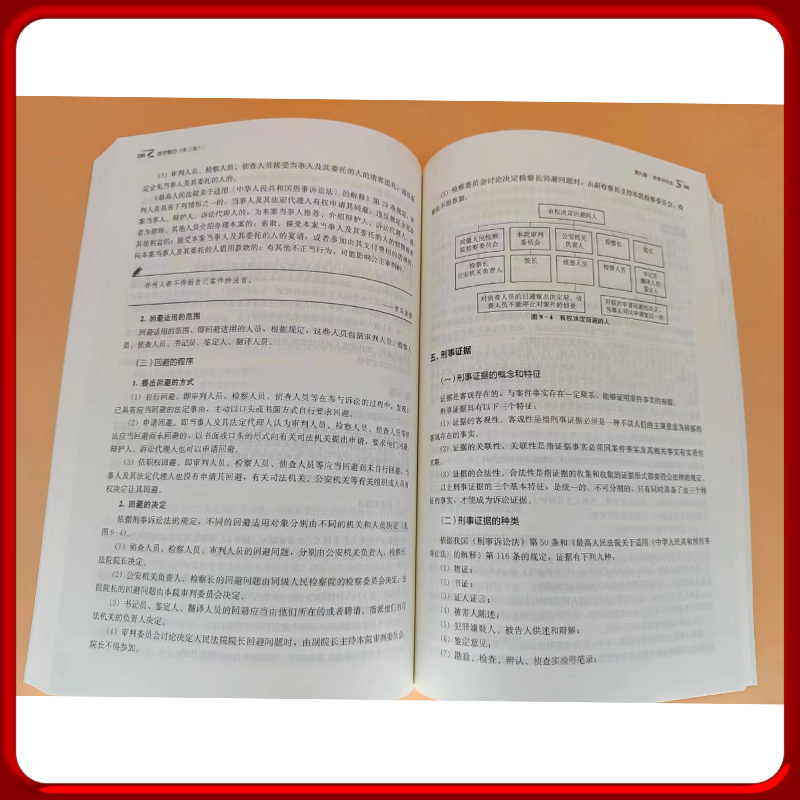 法学概论（第三版）
（5）审判人员、检察人员、侦查人员接受当事人及其委托的人的请客送礼，违反规
定会见当事人及其委托的人的。
《最高人民法院关于适用〈中华人民共和国刑事诉讼法〉的解释》第28条规定，审
判人员具有下列情形之一的，当事人及其法定代理人有权申请其回避：违反规定会见本
案当事人、辩护人、诉讼代理人的；为本案当事人推荐、介绍辩护人、诉讼代理人，或
者为律师、其他人员介绍办理本案的；索取、接受本案当事人及其委托的人的财物或者
其他利益的；接受本案当事人及其委托的人的宴请，或者参加由其支付费用的活动的；
向本案当事人及其委托的人借用款物的；有其他不正当行为，可能影响公正审判的。
任何人都不得做自己案件的法官。
2. 回避适用的范围
回避适用的范围，即回避适用的人员，根据规定，这些人员包括审判人员、检察人
员、侦查人员、书记员、鉴定人、翻译人员。
（三）回避的程序
1. 提出回避的方式
（1）自行回避，即审判人员、检察人员、侦查人员等在参与诉讼的过程中，发现自
己具有应当回避的法定事由，主动以口头或书面方式自行要求回避。
（2）申请回避，即当事人及其法定代理人认为审判人员、检察人员、侦查人员等依
法应当回避而未回避的，以书面或口头的形式向有关司法机关提出申请，要求他们回避。
辩护人、诉讼代理人也可以申请回避。
（3）依职权回避，即审判人员、检察人员、侦查人员等应当回避而未自行回避，当
事人及其法定代理人也没有申请其回避，有关司法机关、公安机关等有关组织或人员有
权决定让其回避。
2. 回避的决定
依据刑事诉讼法的规定，不同的回避适用对象分别由不同的机关和人员决定（见
图9-4）。
（1）侦查人员、检察人员、审判人员的回避问题，分别由公安机关负责人、检察长、
法院院长决定。
（2）公安机关负责人、检察长的回避问题由同级人民检察院的检察委员会决定，法
院院长的回避问题由本院审判委员会决定。
（3）书记员、鉴定人、翻译人员的回避应当由他们所在的或者聘请、指派他们的司
法机关的负责人决定。
（4）审判委员会讨论决定人民法院院长回避问题时，由副院长主持本院审判委员会，
院长不得参加。
（5）检察委员会讨论决定检察长回避问题时，由副检察长主持本级检察委员会，检
察长不得参加。
有权决定回避的人
同级人民检察院检察委员会
本院审判委员会
公安机关负责人
检察长
院长
检察长 公安机关负责人
院长
侦查人员
检察人员
书记员 翻译人员 鉴定人
对侦查人员的回避做出决定前，侦查人员不能停止对案件的侦查
对驳回申请回避的决定，当事人可以申请复议一次
图9-4 有权决定回避的人
五、刑事证据
（一）刑事证据的概念和特征
证据是客观存在的，与案件事实存在一定联系，能够证明案件事实的根据。
刑事证据具有以下三个特征：
（1）证据的客观性。客观性是指刑事证据必须是一种不以人们的主观意志为转移的
客观存在的事实。
（2）证据的关联性。关联性是指证据事实必须同案件事实及其相关事实有实质性
关联。
（3）证据的合法性。合法性是指证据的收集和收集的证据形式都要符合法律的规定。
以上刑事证据的三个基本特征，是统一的、不可分割的，只有同时具备了这三个特
征的事实，才能成为诉讼证据。
（二）刑事证据的种类
依据我国《刑事诉讼法》第50条和《最高人民法院关于适用〈中华人民共和国刑事
诉讼法〉的解释》第116条的规定，证据有下列九种：
（1）物证；
（2）书证；
（3）证人证言；
（4）被害人陈述；
（5）犯罪嫌疑人、被告人供述和辩解；
（6）鉴定意见；
（7）勘验、检查、辨认、侦查实验等笔录；